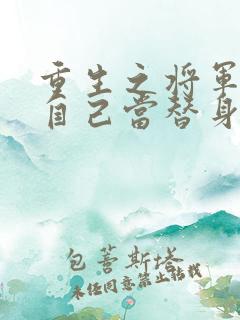 重生之将军
自己当替身
包薝斯塔
未经同意禁止转载